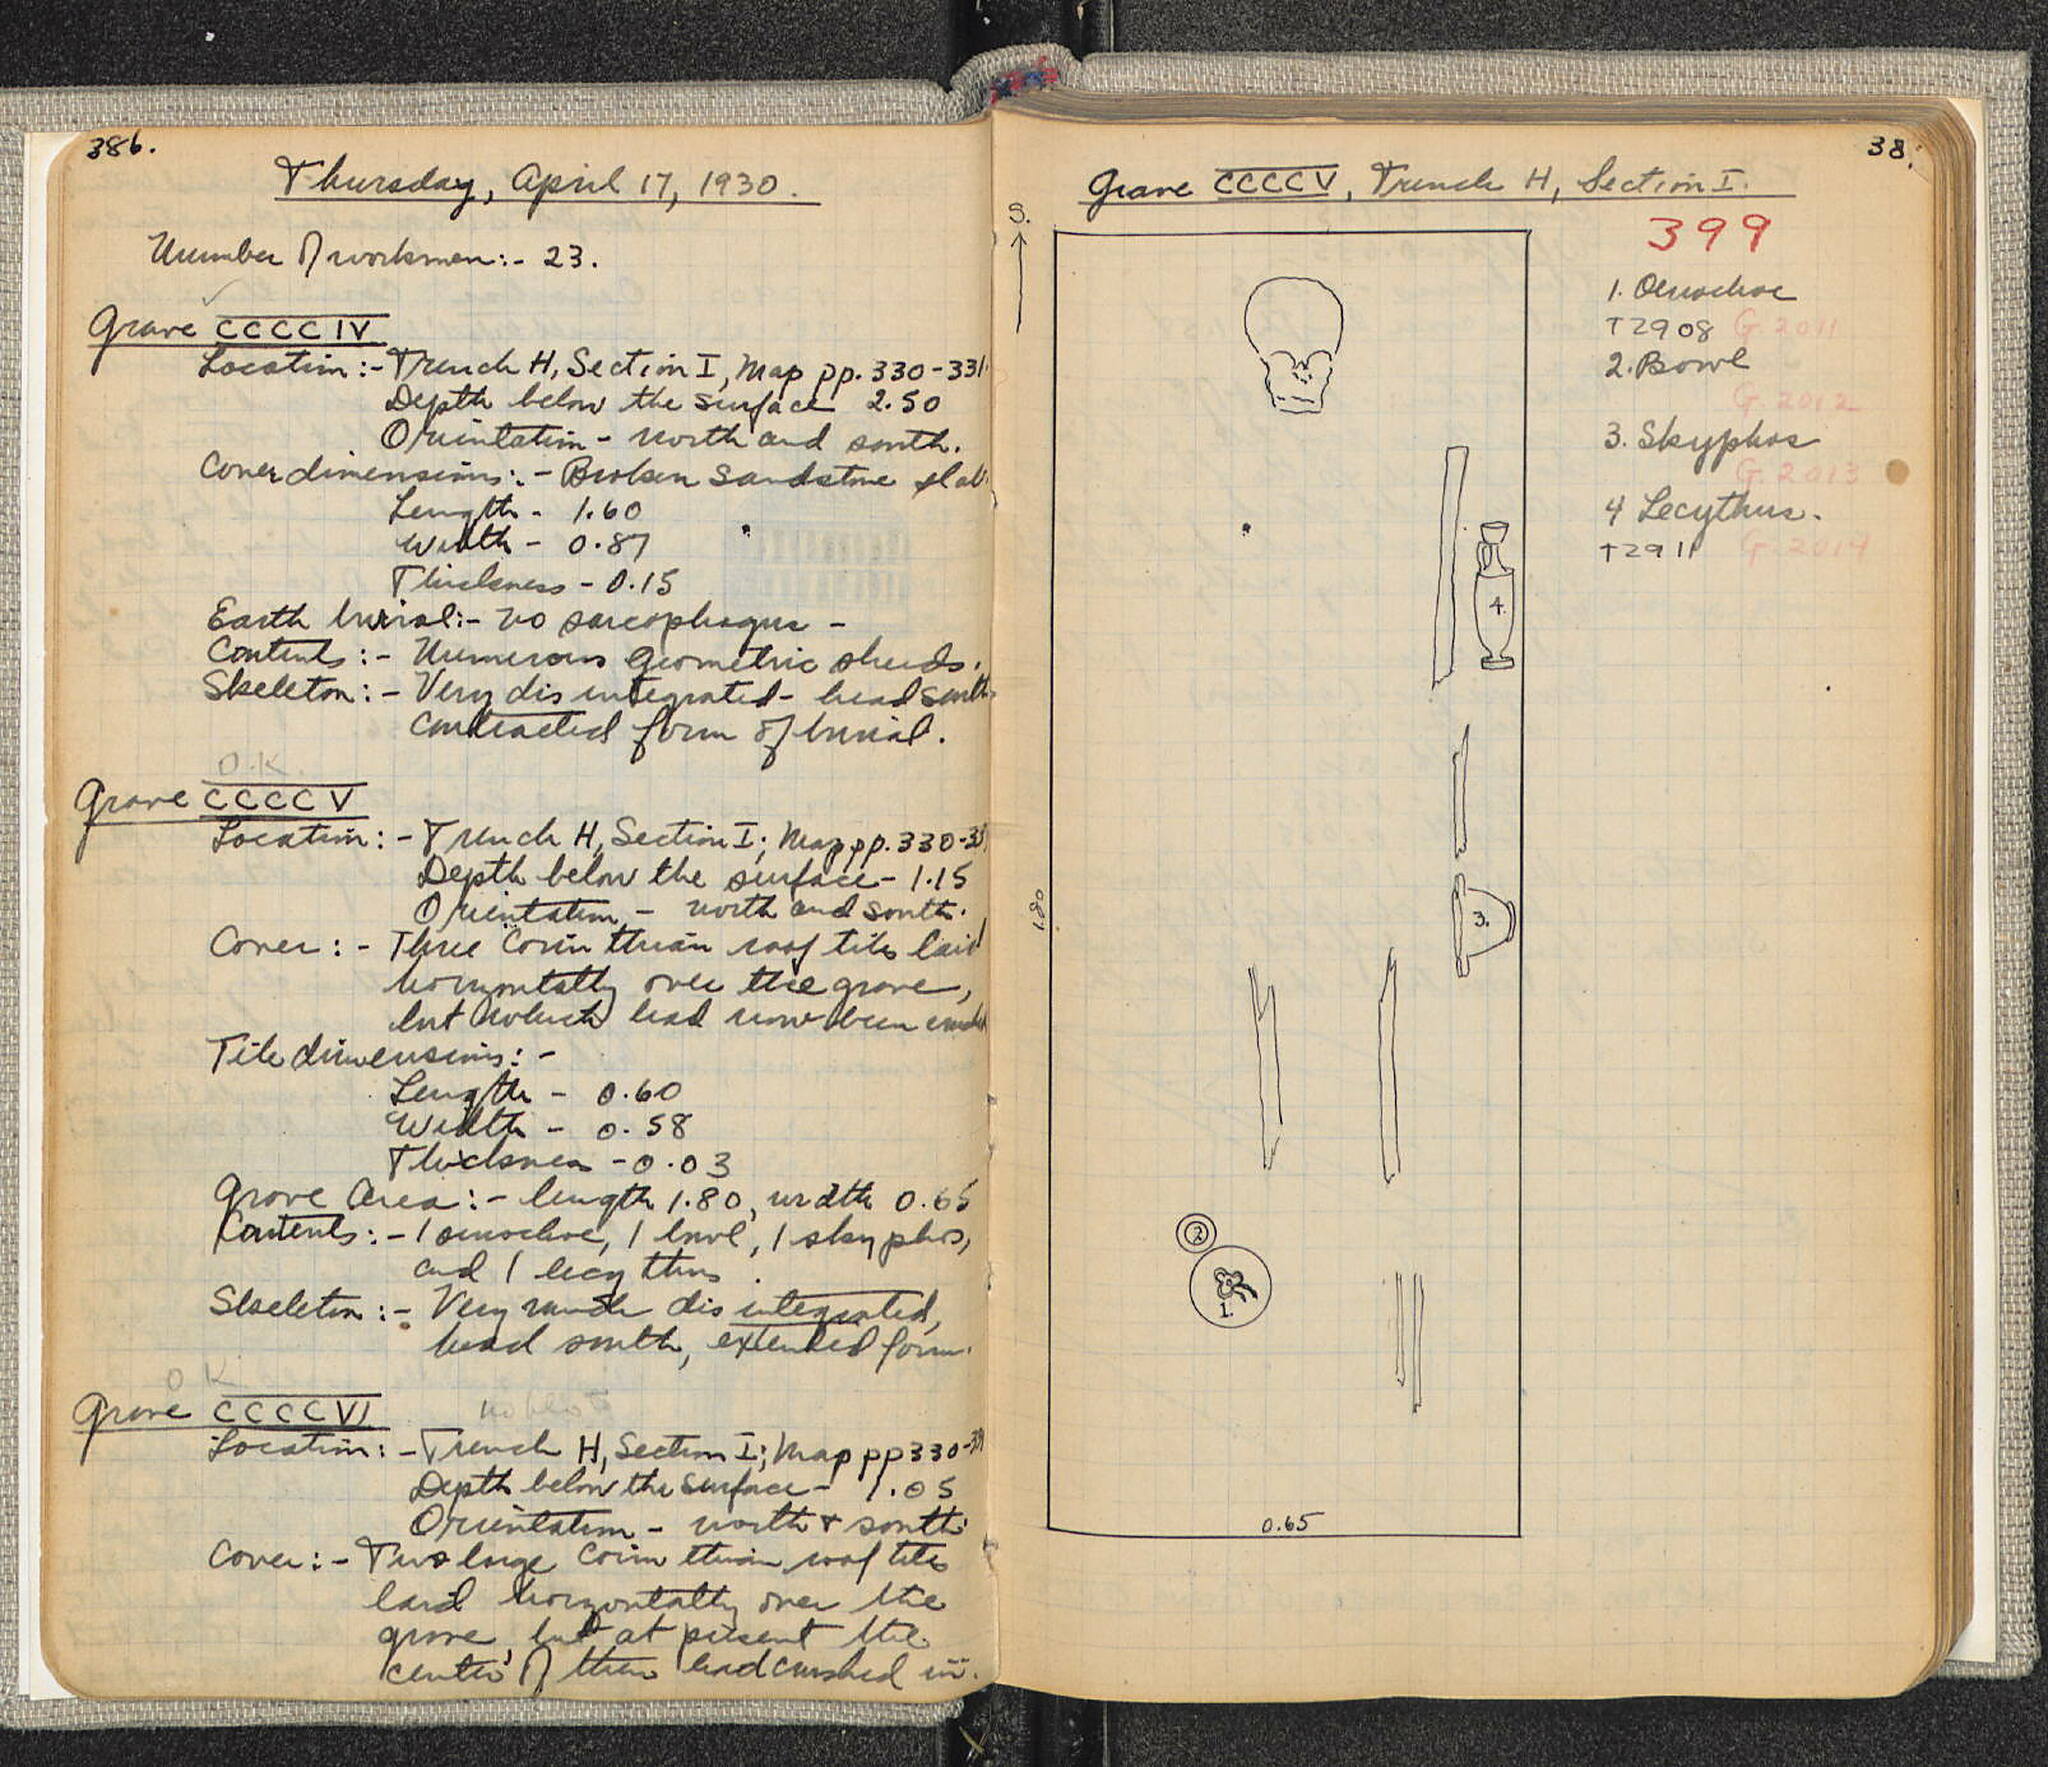 386.
Thursday, April 17, 1930.
Number of workmen:- 23.
Grave CCCCIV
Location:- Trench H, Section I, Map pp. 330-331.
Depth below the surface 2.50
Orientation - north and south.
Cover dimensions:- Broken sandstone slab
Length - 1.60
Width - 0.87
Thickness - 0.15
Earth burial:- no sarcophagus -
Contents:- Numerous geometric sherds.
Skeleton:- Very disintegrated - head south
contracted form of burial.
O.K.
Grave CCCCV
Location:- Trench H, Section I; Map pp. 330-331
Depth below the surface - 1.15
Orientation - north and south.
Cover:- Three Corinthian roof tiles laid
horizontally over the grave,
but which had now been
Tile dimensions:-
Length - 0.60
Width - 0.58
Thickness - 0.03
Grave Area:- length 1.80, width 0.65
Contents:- 1 oenochoe, 1 bowl, 1 skyphos,
and 1 lecythus.
Skeleton:- Very much disintegrated,
head south, extended form.
O.K.
Grave CCCCVI
Location:- Trench H, Section I; Map pp 330-331
Depth below the surface - 1.05
Orientation - north & south
Cover:- Two large Corinthian roof tiles
laid horizontally over the
grave, but at present the
center of them had crushed in.
38.
Grave CCCCV, Trench H, Section I.
S.
399
1. Oenochoe
T2908 G. 2011
2. Bowl
G. 2012
3. Skyphos
G. 2013
4 Lecythus.
T2911 G. 2014
4.
1.80
3.
2
1.
0.65